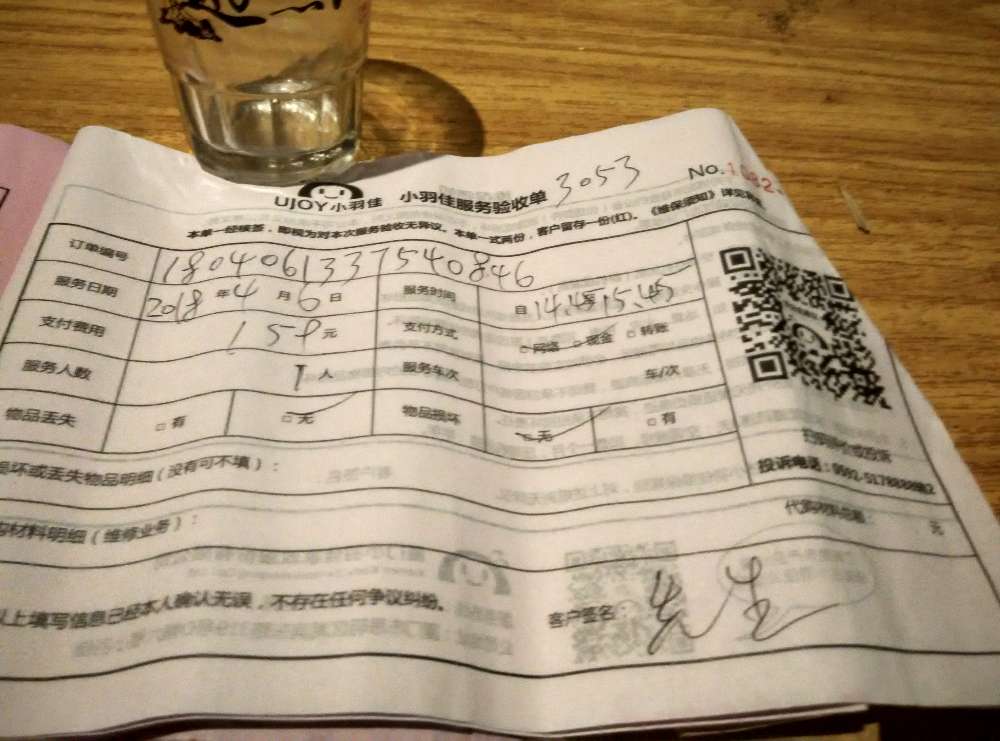 UJOY小羽佳 小羽佳服务验收单 3053 No.
本单一经核签，即视为对本次服务验收无异议。本单一式两份，客户留存一份(红)。《维保须知》详见
订单编号 1804061337540846
服务日期 2018年4月6日 服务时间 自14.45至15.45
支付费用 159元 支付方式 □网络 □现金 □转账
服务人数 1人 服务车次 车/次
物品丢失 □有 □无 物品损坏 □无 □有
坏或丢失物品明细(没有可不填)：
投诉电话：0592-5178888转2
材料明细(维修业务)： 代购材料总额： 元
以上填写信息已经本人确认无误，不存在任何争议纠纷。 客户签名：先生